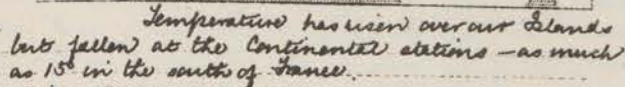 Temperature has risen over our Islands
but fallen at the Continental stations – as much
as 15° in the south of France.